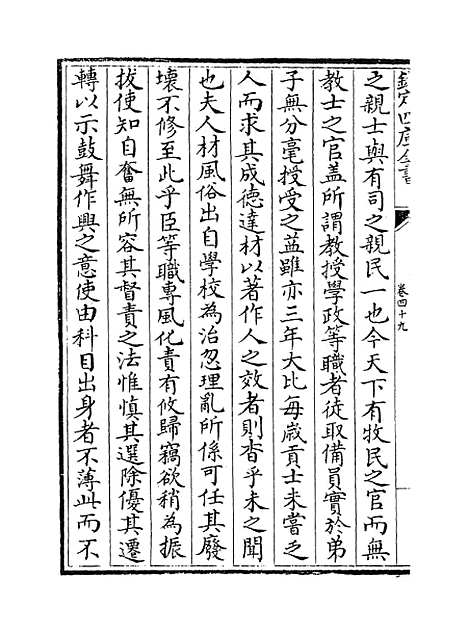 之親士與有司之親民一也今天下有牧民之官而無
教士之官盖所謂教授學政等職者徒取備員實於弟
子無分毫授受之益雖亦三年大比每歳貢士未嘗乏
人而求其成德達材以著作人之效者則杳乎未之聞
也夫人材風俗出自學校為治忽理亂所係可任其廢
壞不修至此乎臣等職專風化責有攸歸竊欲稍為振
拔使知自奮無所容其督責之法惟慎其選除優其遷
轉以示鼓舞作興之意使由科目出身者不薄此而不
欽定四庫全書
卷四十九